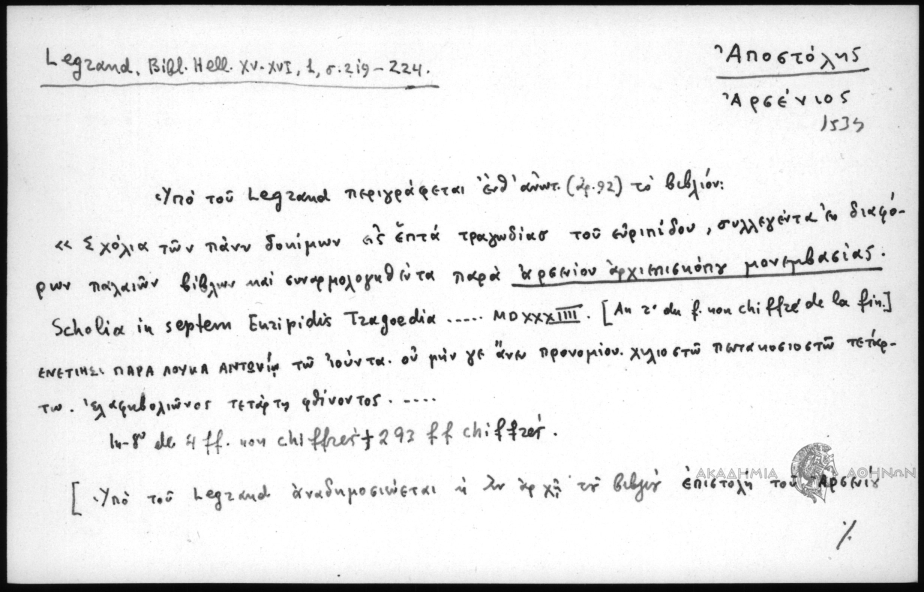 Legrand, Bibl. Hell. XV-XVI, 1, σ. 219-224.
Ἀποστόλης
Ἀρσένιος
1534
Ὑπό τοῦ Legrand περιγράφεται ἐνθ' ἀνωτ. (ἀρ. 92) τό βιβλίον:
«Σχόλια τῶν πάνυ δοκίμων εἰς ἑπτά τραγῳδίας τοῦ εὐριπίδου, συλλεγέντα ἐκ διαφό-
ρων παλαιῶν βίβλων καί συναρμολογηθέντα παρά ἀρσενίου ἀρχιεπισκόπου μονεμβασίας.
Scholia in septem Euripidis Tragoedia ..... MDXXXIIII. [Au rº du f. non chiffré de la fin.]
ΕΝΕΤΙΗΣΙ ΠΑΡΑ ΛΟΥΚΑ ΑΝΤΩΝΙῼ τῶ ἰούντα. οὐ μήν γε ἄνευ προνομίου. χιλιοστῶ πεντακοσιοστῶ τετάρ-
τω. ἐλαφηβολιῶνος τετάρτῃ φθίνοντος. ....
In-8º de 4 ff. non chiffrés + 293 ff chiffrés.
[Ὑπό τοῦ Legrand ἀναδημοσιεύεται ἡ ἐν ἀρχῇ τοῦ βιβλίου ἐπιστολή τοῦ Ἀρσενίου
ΑΚΑΔΗΜΙΑ ΑΘΗΝΩΝ
./.